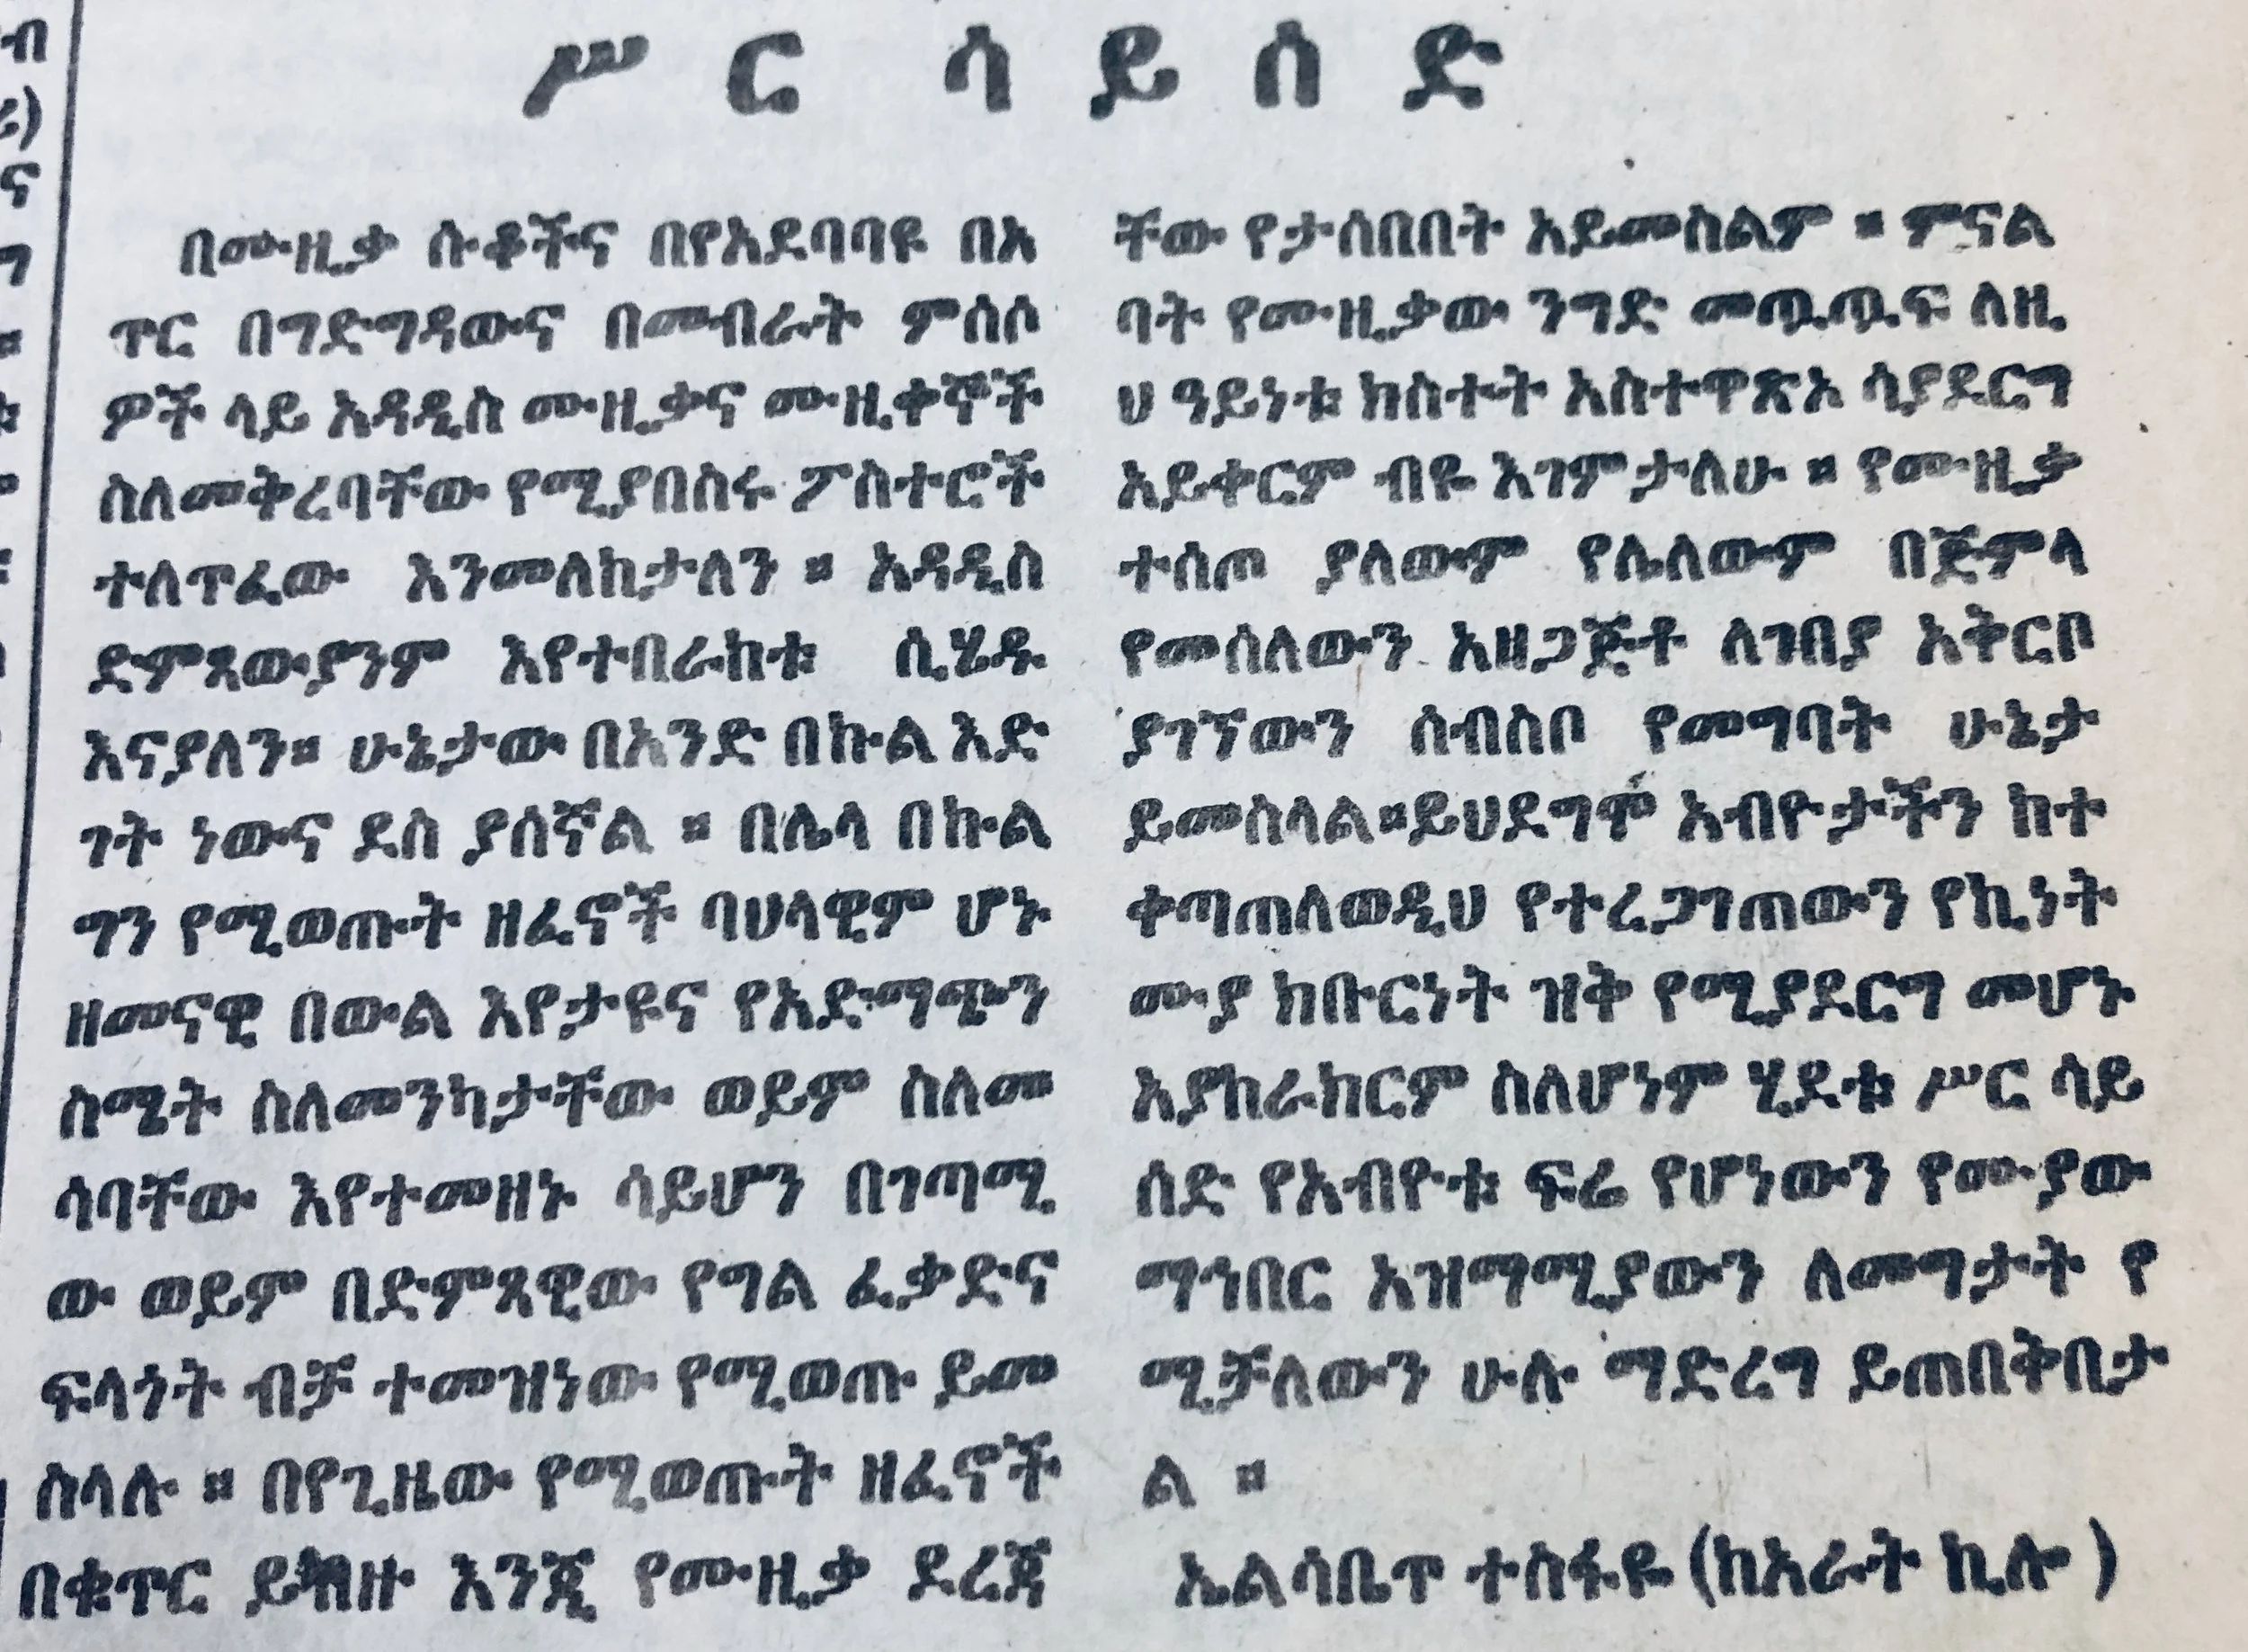 ሥር ሳይሰድ
በሙዚቃ ሱቆችና በየአደባባዩ በአ
ጥር በግድግዳውና በመብራት ምሰሶ
ዎች ላይ አዳዲስ ሙዚቃና ሙዚቀኞች
ስለመቅረባቸው የሚያበስሩ ፖስተሮች
ተለጥፈው እንመለከታለን ። አዳዲስ
ድምጻውያንም እየተበራከቱ ሲሄዱ
እናያለን። ሁኔታው በአንድ በኩል እድ
ገት ነውና ደስ ያሰኛል ። በሌላ በኩል
ግን የሚወጡት ዘፈኖች ባህላዊም ሆኑ
ዘመናዊ በውል እየታዩና የአድማጭን
ስሜት ስለመንካታቸው ወይም ስለመ
ሳባቸው እየተመዘኑ ሳይሆን በገጣሚ
ው ወይም በድምጻዊው የግል ፈቃድና
ፍላጎት ብቻ ተመዝነው የሚወጡ ይመ
ስላሉ ። በየጊዜው የሚወጡት ዘፈኖች
በቁጥር ይብዙ እንጂ የሙዚቃ ደረጃ
ቸው የታሰበበት አይመስልም ። ምናል
ባት የሙዚቃው ንግድ መጧጧፍ ለዚ
ህ ዓይነቱ ክስተት አስተዋጽአ ሳያደርግ
አይቀርም ብዬ እገምታለሁ ። የሙዚቃ
ተሰጦ ያለውም የሌለውም በጅምላ
የመሰለውን አዘጋጅቶ ለገበያ አቅርቦ
ያገኘውን ሰብስቦ የመግባት ሁኔታ
ይመስላል።ይህደግሞ አብዮታችን ከተ
ቀጣጠለወዲህ የተረጋገጠውን የኪነት
ሙያ ክቡርነት ዝቅ የሚያደርግ መሆኑ
አያከራክርም ስለሆነም ሂደቱ ሥር ሳይ
ሰድ የአብዮቱ ፍሬ የሆነውን የሙያው
ማኅበር አዝማሚያውን ለመግታት የ
ሚቻለውን ሁሉ ማድረግ ይጠበቅበታ
ል ።
ኤልሳቤጥ ተስፋዬ (ከአራት ኪሎ )